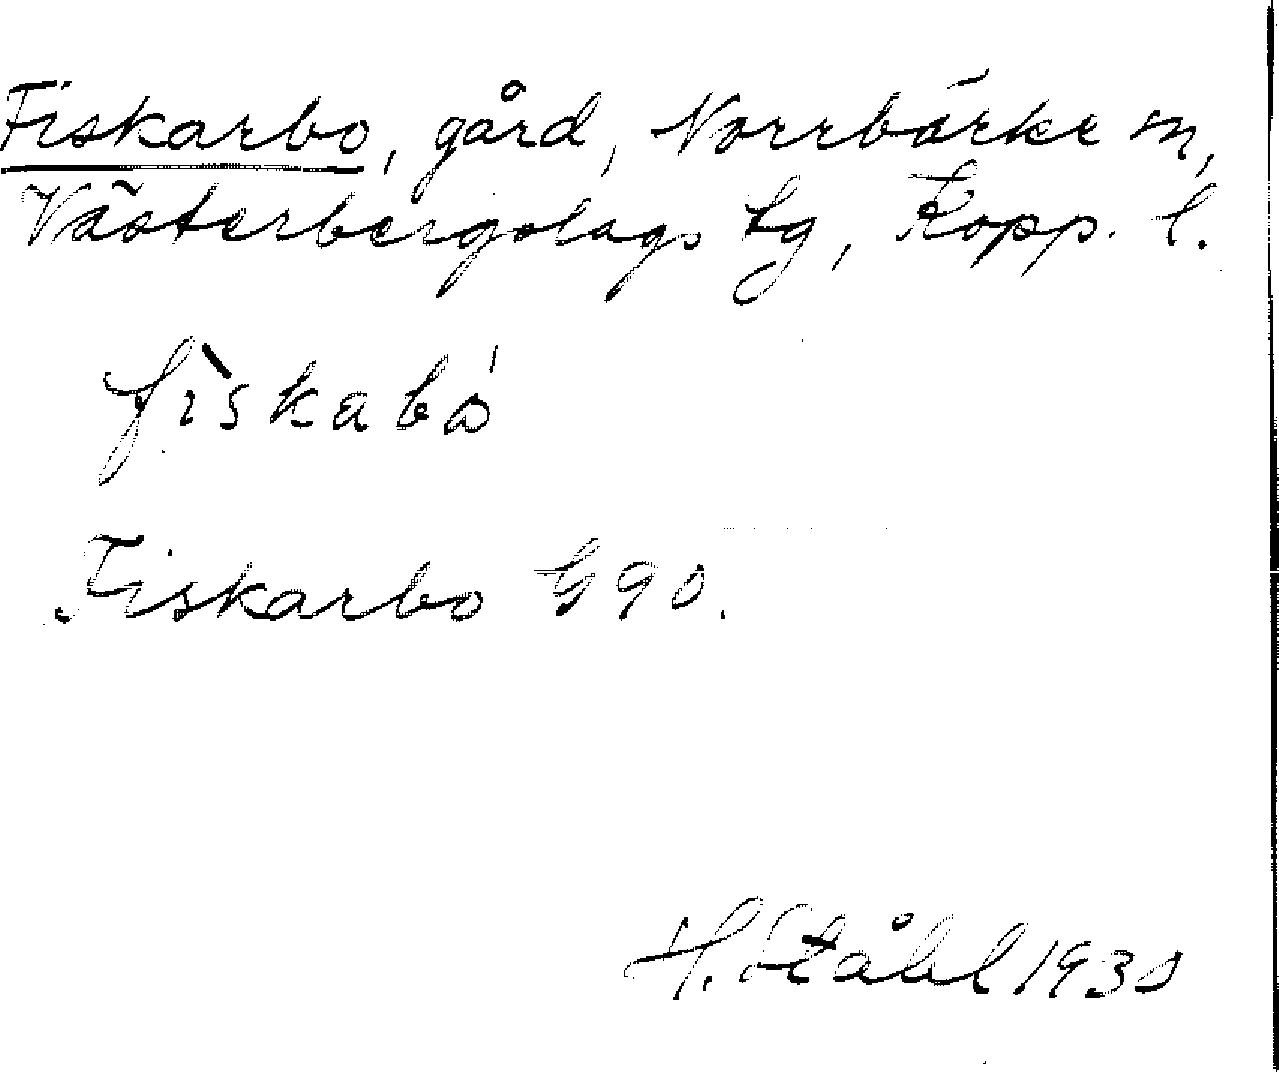 Fiskarbo, gård, Norrbärke sn,
Västerbergslags tg, Kopp. l.
fìskabó
Fiskarbo G 90.
H. Ståhl 1930